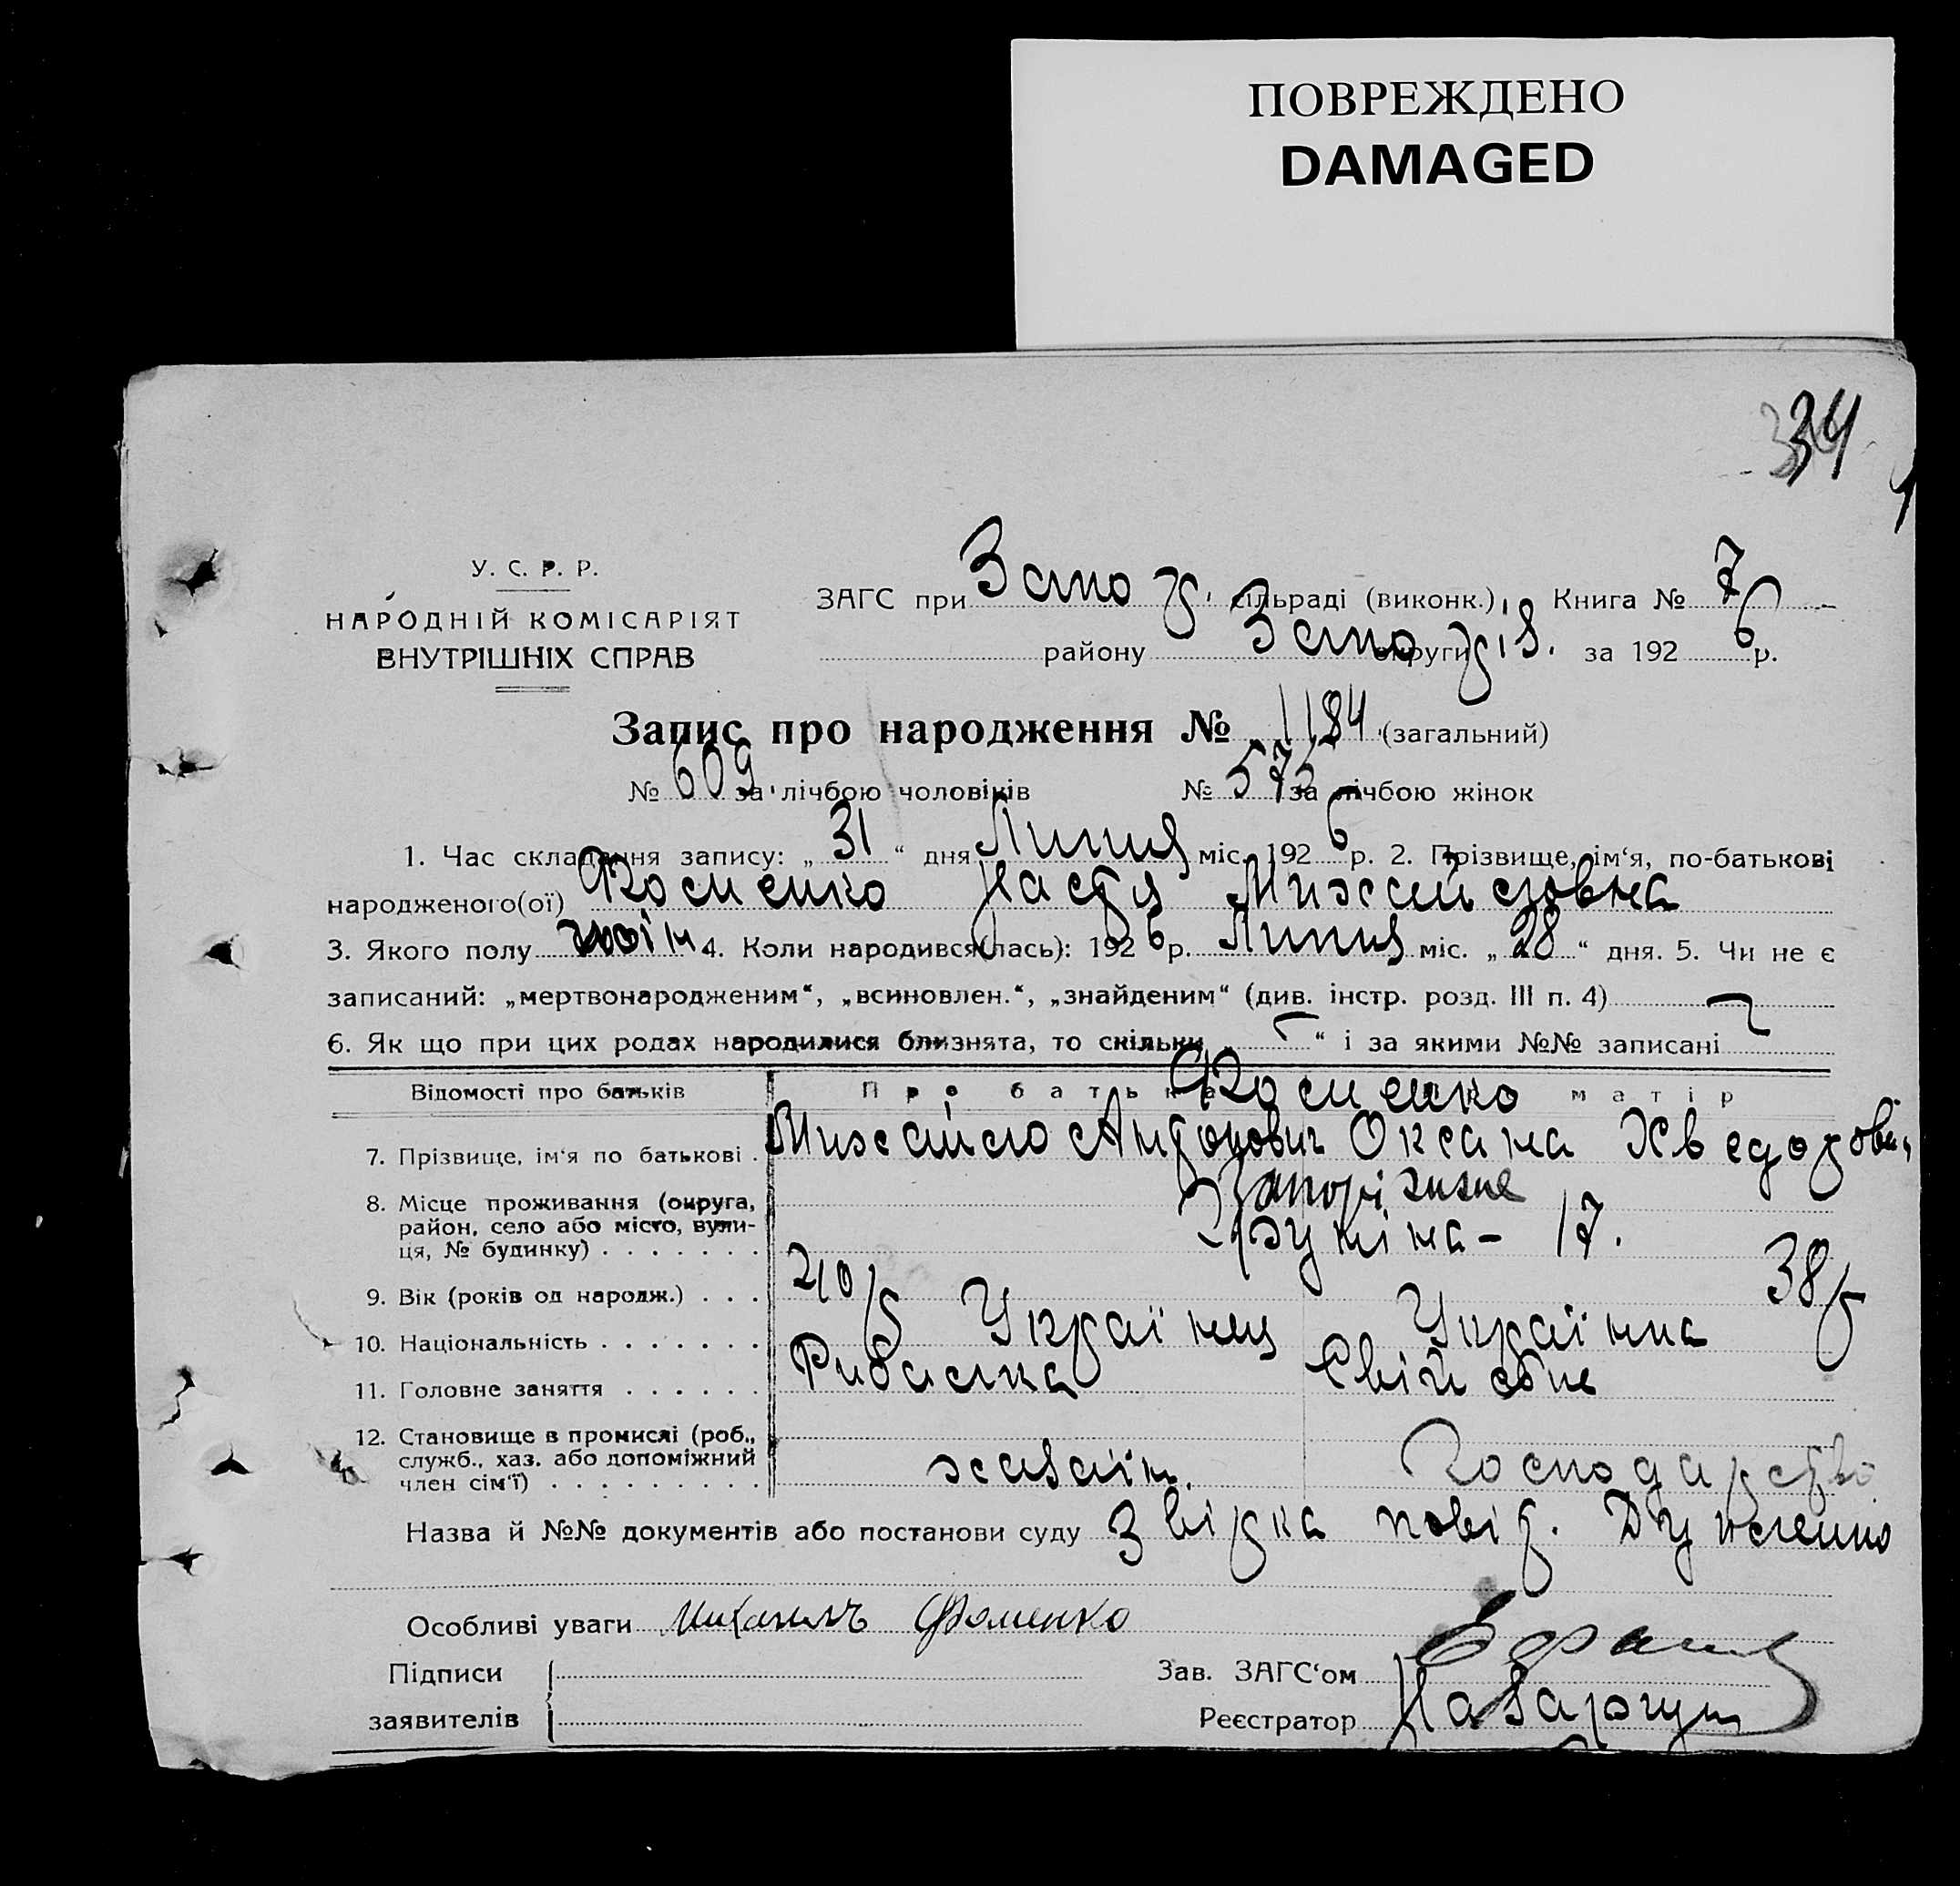 ПОВРЕЖДЕНО
DAMAGED
334
У. С. Р. Р.
НАРОДНІЙ КОМІСАРІЯТ
ВНУТРІШНІХ СПРАВ
ЗАГС при Запор. сільраді (виконк.) Книга № 7
району Запоріз. округи за 1926 р.
Запис про народження № 1184 (загальний)
№ 609 за лічбою чоловіків № 575 за лічбою жінок
1. Час складання запису: „31“ дня Липця міс. 1926 р. 2. Прізвище, ім‘я, по-батькові
народженого(ої) Фоменко Настя Михайловна
3. Якого полу жін 4. Коли народився(лась): 1926 р. Липця міс. „28“ дня. 5. Чи не є
записаний: „мертвонародженим“, „всиновлен.“, „знайденим“ (див. інстр. розд. III п. 4)
6. Як що при цих родах народилися близнята, то скільки „ “ і за якими №№ записані
Відомості про батьків Про батька Фоменко матір
7. Прізвище, ім‘я по батькові . Михайло Антонович Оксана Хведоровн
8. Місце проживання (округа, Запоріжже
район, село або місто, вули-
ця, № будинку) . . . . . . . 17.
9. Вік (років од народж.) . . . 40 38
10. Національність . . . . . . . Українец Українка
11. Головне заняття . . . . . . Рибалка Свійське
12. Становище в промислі (роб.,
служб., хаз. або допоміжний хазаїн. Господарство
член сім‘ї) . . . . . . . . .
Назва й №№ документів або постанови суду Звірка повід.
Особливі уваги Михаилъ Фоменко
Підписи Зав. ЗАГС‘ом
заявителів Реєстратор